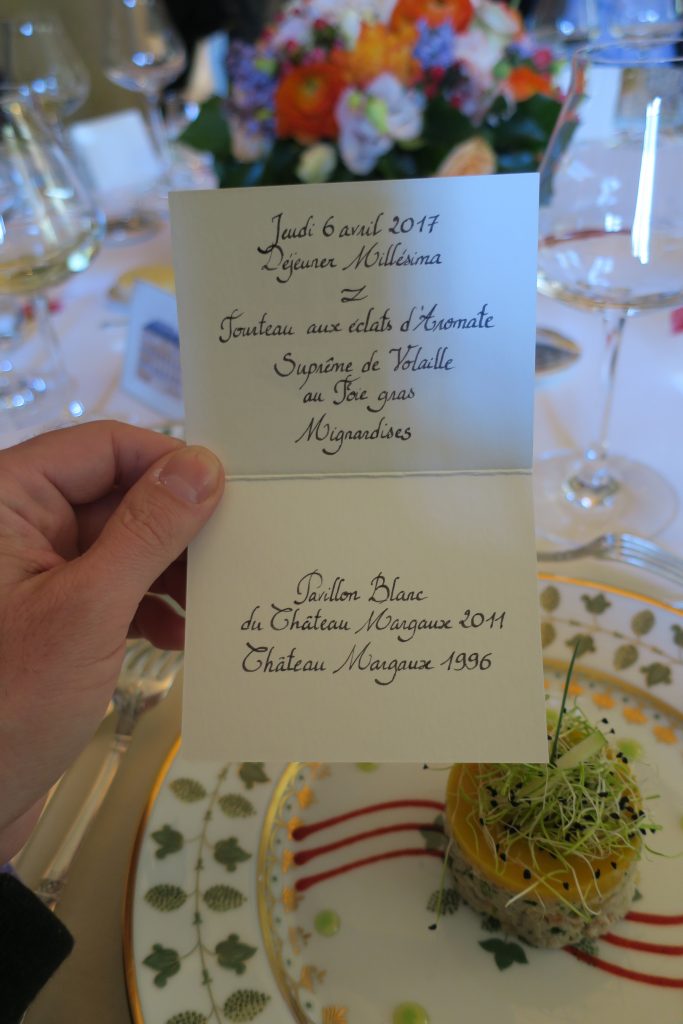 Jeudi 6 avril 2017
Déjeuner Millésima
Tourteau aux éclats d'Aromate
Suprême de Volaille
au Foie gras
Mignardises
Pavillon Blanc
du Château Margaux 2011
Château Margaux 1996